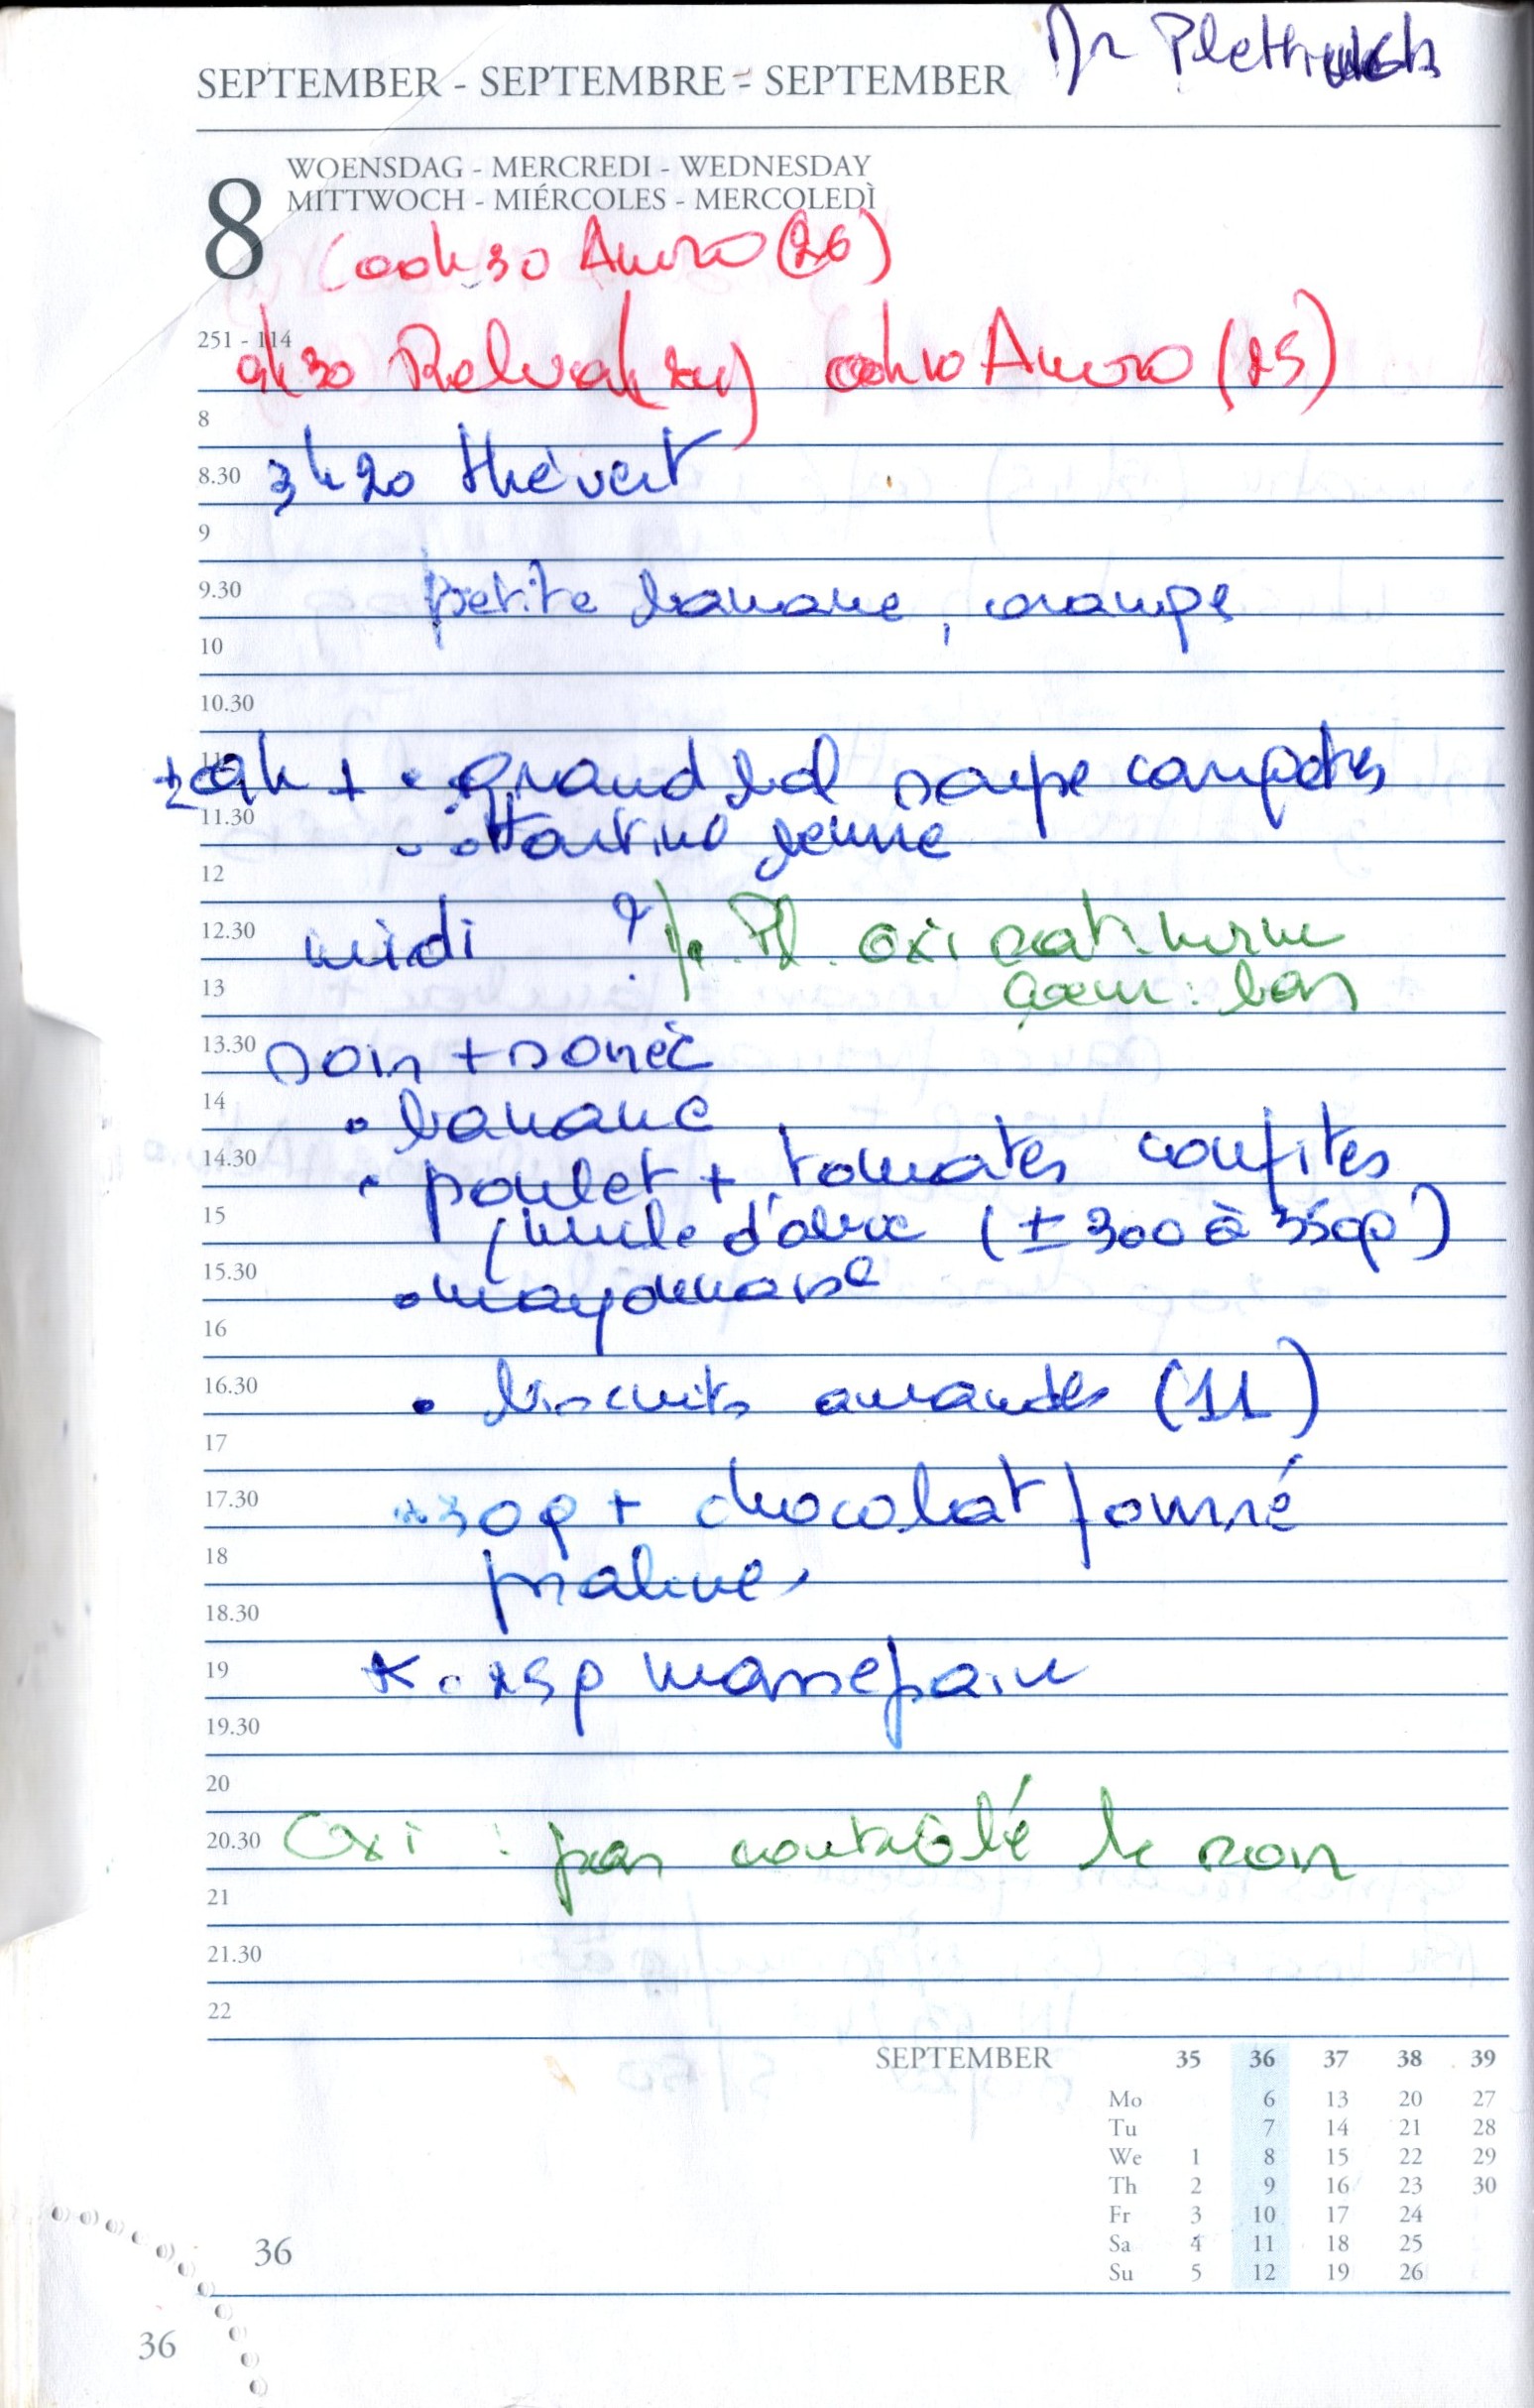 Dr
SEPTEMBER - SEPTEMBRE - SEPTEMBER
8
WOENSDAG - MERCREDI - WEDNESDAY
MITTWOCH - MIÉRCOLES - MERCOLEDÌ
(26)
251 - 114
(25)
8
8.30 3h20 thé vert
9
9.30 petite banane, orange
10
10.30
11 + • grand bol soupe
11.30 tartine
12
12.30 midi ? Dr. Pl. oxi
13 coeur : bon
13.30 soir +
14 • banane
14.30 • poulet + tomates confites
15 huile d'olive (± 300 à 350g)
15.30 • mayonnaise
16
16.30 • biscuits amandes (11)
17
17.30 30g + chocolat fourré
18 praline
18.30
19 25g massepain
19.30
20
20.30 Oxi : pas contrôlé le soir
21
21.30
22
SEPTEMBER 35 36 37 38 39
Mo 6 13 20 27
Tu 7 14 21 28
We 1 8 15 22 29
Th 2 9 16 23 30
Fr 3 10 17 24
Sa 4 11 18 25
Su 5 12 19 26
36
36